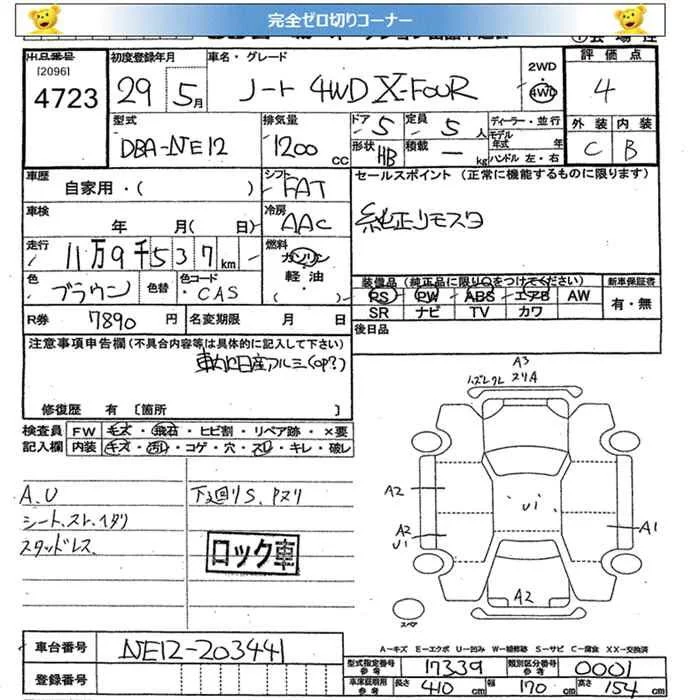 完全ゼロ切りコーナー
出品番号
[2096]
4723
初度登録年月
29 5月
車名・グレード
ノート 4WD X-FOUR
2WD
4WD
評価点
4
型式
DBA-NE12
排気量
1200 cc
ドア 5
定員 5 人
形状 HB
積載 — kg
ディーラー・並行
モデル年式 年
ハンドル 左・右
外装 内装
C B
車歴
自家用・( )
シフト
FAT
セールスポイント (正常に機能するものに限ります)
純正リモスタ
車検
年 月( 日)
冷房
AAC
走行
11万9千537km
燃料
ガソリン
軽油
色
ブラウン
色替
色コード
CAS
装備品 (純正品に限り○をつけてください)
PS PW ABS エアB AW
SR ナビ TV カワ
新車保証書
有・無
R券 7890 円
名変期限 月 日
後日品
注意事項申告欄 (不具合内容等は具体的に記入して下さい)
日産アルミ(OP?)
修復歴 有 [箇所 ]
検査員 FW キズ・飛石・ヒビ割・リペア跡・×要
記入欄 内装 キズ・汚れ・コゲ・穴・スレ・キレ・破レ
A.U
シート、スレ、ヘタリ
スタッドレス
下廻りS、Pヌリ
ロック車
A3
ノズレクレ スリA
A2
U1
A2
U1
A1
A2
スペア
A−キズ E−エクボ U−凹み W−補修跡 S−サビ C−腐食 XX−交換済
車台番号 NE12-203441
登録番号
型式指定番号 参考 17339
類別区分番号 参考 0001
車体証明用 参考 長さ 410 cm 幅 170 cm 高さ 154 cm